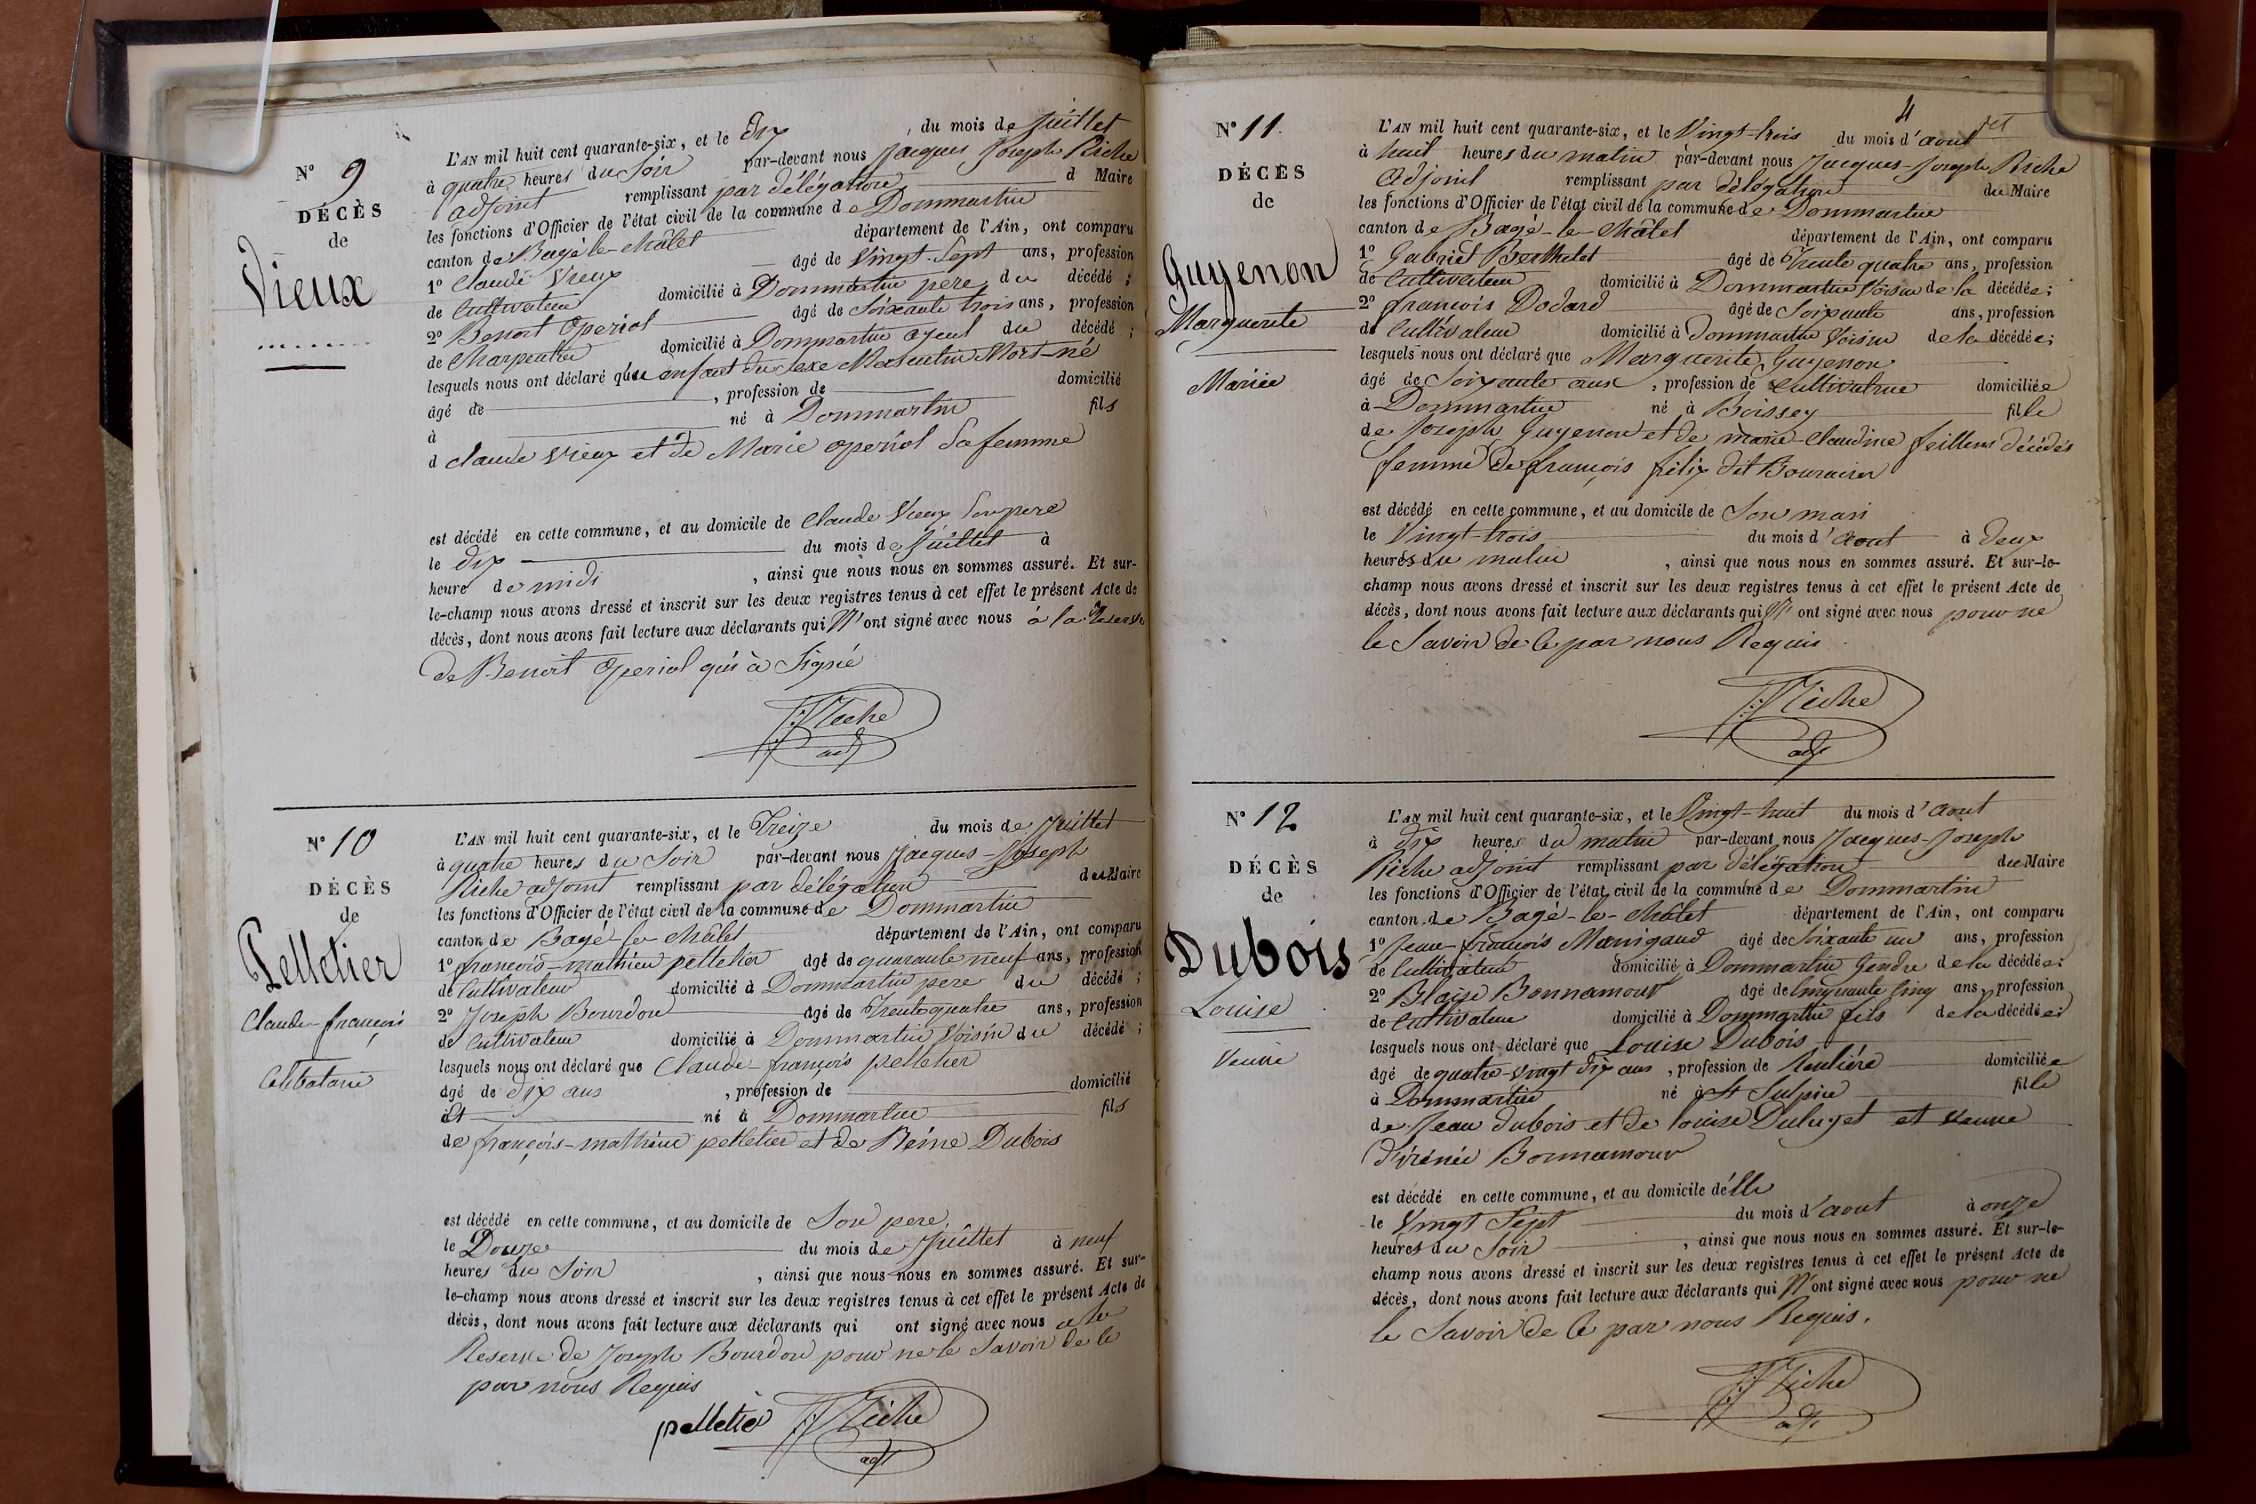 N° 9
DÉCÈS
de
Vieux
L'AN mil huit cent quarante-six, et le Dix du mois de Juillet
à quatre heures du Soir par-devant nous Jacques Joseph Riche
adjoint remplissant par délégation d Maire
les fonctions d'Officier de l'état civil de la commune de Dommartin
canton de Bagé-le-Châtel département de l'Ain, ont comparu
1° Claude Vieux âgé de Vingt-Sept ans, profession
de Cultivateur domicilié à Dommartin père du décédé ;
2° Benoit Operiol âgé de Soixante trois ans, profession
de Charpentier domicilié à Dommartin ayeul du décédé ;
lesquels nous ont déclaré que enfant du sexe Masculin Mort-né
âgé de , profession de domicilié
à né à Dommartin fils
d claude Vieux et de Marie operiol Sa femme
est décédé en cette commune, et au domicile de Claude Vieux Son pere
le dix du mois de Juillet à
heure de midi , ainsi que nous nous en sommes assuré. Et sur-
le-champ nous avons dressé et inscrit sur les deux registres tenus à cet effet le présent Acte de
décès, dont nous avons fait lecture aux déclarants qui N'ont signé avec nous à la Reserve
de Benoit Operiol qui à Signé
JJ Riche
adj
N° 10
DÉCÈS
de
Pelletier
Claude-françois
Celibataire
L'AN mil huit cent quarante-six, et le Treize du mois de Juillet
à quatre heures du Soir par-devant nous Jacques-Joseph
Riche adjoint remplissant par délégation du Maire
les fonctions d'Officier de l'état civil de la commune de Dommartin
canton de Bagé-le-Châtel département de l'Ain, ont comparu
1° françois-mathieu pelletier âgé de quarante neuf ans, profession
de Cultivateur domicilié à Dommartin pere du décédé ;
2° Joseph Bourdon âgé de Trente quatre ans, profession
de Cultivateur domicilié à Dommartin Voisin du décédé ;
lesquels nous ont déclaré que Claude-françois pelletier
âgé de dix ans , profession de domicilié
à né à Dommartin fils
de françois-mathieu pelletier et de Reine Dubois
est décédé en cette commune, et au domicile de Son pere
le Douze du mois de Juillet à neuf
heures du Soir , ainsi que nous nous en sommes assuré. Et sur-
le-champ nous avons dressé et inscrit sur les deux registres tenus à cet effet le présent Acte de
décès, dont nous avons fait lecture aux déclarants qui ont signé avec nous a la
Reserve de Joseph Bourdon pour ne le Savoir de Ce
par nous Requis
pelletier JJ Riche
adj
4
N° 11
DÉCÈS
de
Guyenon
Marguerite
Mariée
L'AN mil huit cent quarante-six, et le Vingt-trois du mois d'aout
à huit heures du matin par-devant nous Jacques-Joseph Riche
Adjoint remplissant par délégation du Maire
les fonctions d'Officier de l'état civil de la commune de Dommartin
canton de Bagé-le-Châtel département de l'Ain, ont comparu
1° Gabriel Berthelet âgé de Trente quatre ans, profession
de Cultivateur domicilié à Dommartin Voisin de la décédée ;
2° françois Dodard âgé de Soixante ans, profession
de Cultivateur domicilié à Dommartin Voisin de la décédée ;
lesquels nous ont déclaré que Marguerite Guyenon
âgé de Soixante ans , profession de Cultivatrice domiciliée
à Dommartin né à Boissey fille
de Joseph Guyenon et de marie-Claudine feillens décédés
femme de françois félix dit Bourcier
est décédé en cette commune, et au domicile de Son mari
le Vingt-trois du mois d'aout à deux
heures du matin , ainsi que nous nous en sommes assuré. Et sur-le-
champ nous avons dressé et inscrit sur les deux registres tenus à cet effet le présent Acte de
décès, dont nous avons fait lecture aux déclarants qui N'ont signé avec nous pour ne
le Savoir de Ce par nous Requis
JJ Riche
adj
N° 12
DÉCÈS
de
Dubois
Louise
Veuve
L'AN mil huit cent quarante-six, et le Vingt-huit du mois d'aout
à dix heures du matin par-devant nous Jacques-Joseph
Riche adjoint remplissant par délégation du Maire
les fonctions d'Officier de l'état civil de la commune de Dommartin
canton de Bagé-le-Châtel département de l'Ain, ont comparu
1° Jean-françois Manigand âgé de Soixante un ans, profession
de Cultivateur domicilié à Dommartin Gendre de la décédée ;
2° Blaise Bonnamour âgé de Cinquante Cinq ans, profession
de Cultivateur domicilié à Dommartin fils de la décédée ;
lesquels nous ont déclaré que Louise Dubois
âgé de quatre-vingt dix ans , profession de Rentière domiciliée
à Dommartin né à St Sulpice fille
de Jean Dubois et de louise Duluget et veuve
d'irénée Bonnamour
est décédé en cette commune, et au domicile d'elle
le Vingt Sept du mois d'aout à onze
heures du Soir , ainsi que nous nous en sommes assuré. Et sur-le-
champ nous avons dressé et inscrit sur les deux registres tenus à cet effet le présent Acte de
décès, dont nous avons fait lecture aux déclarants qui N'ont signé avec nous pour ne
le Savoir de Ce par nous Requis.
JJ Riche
adj